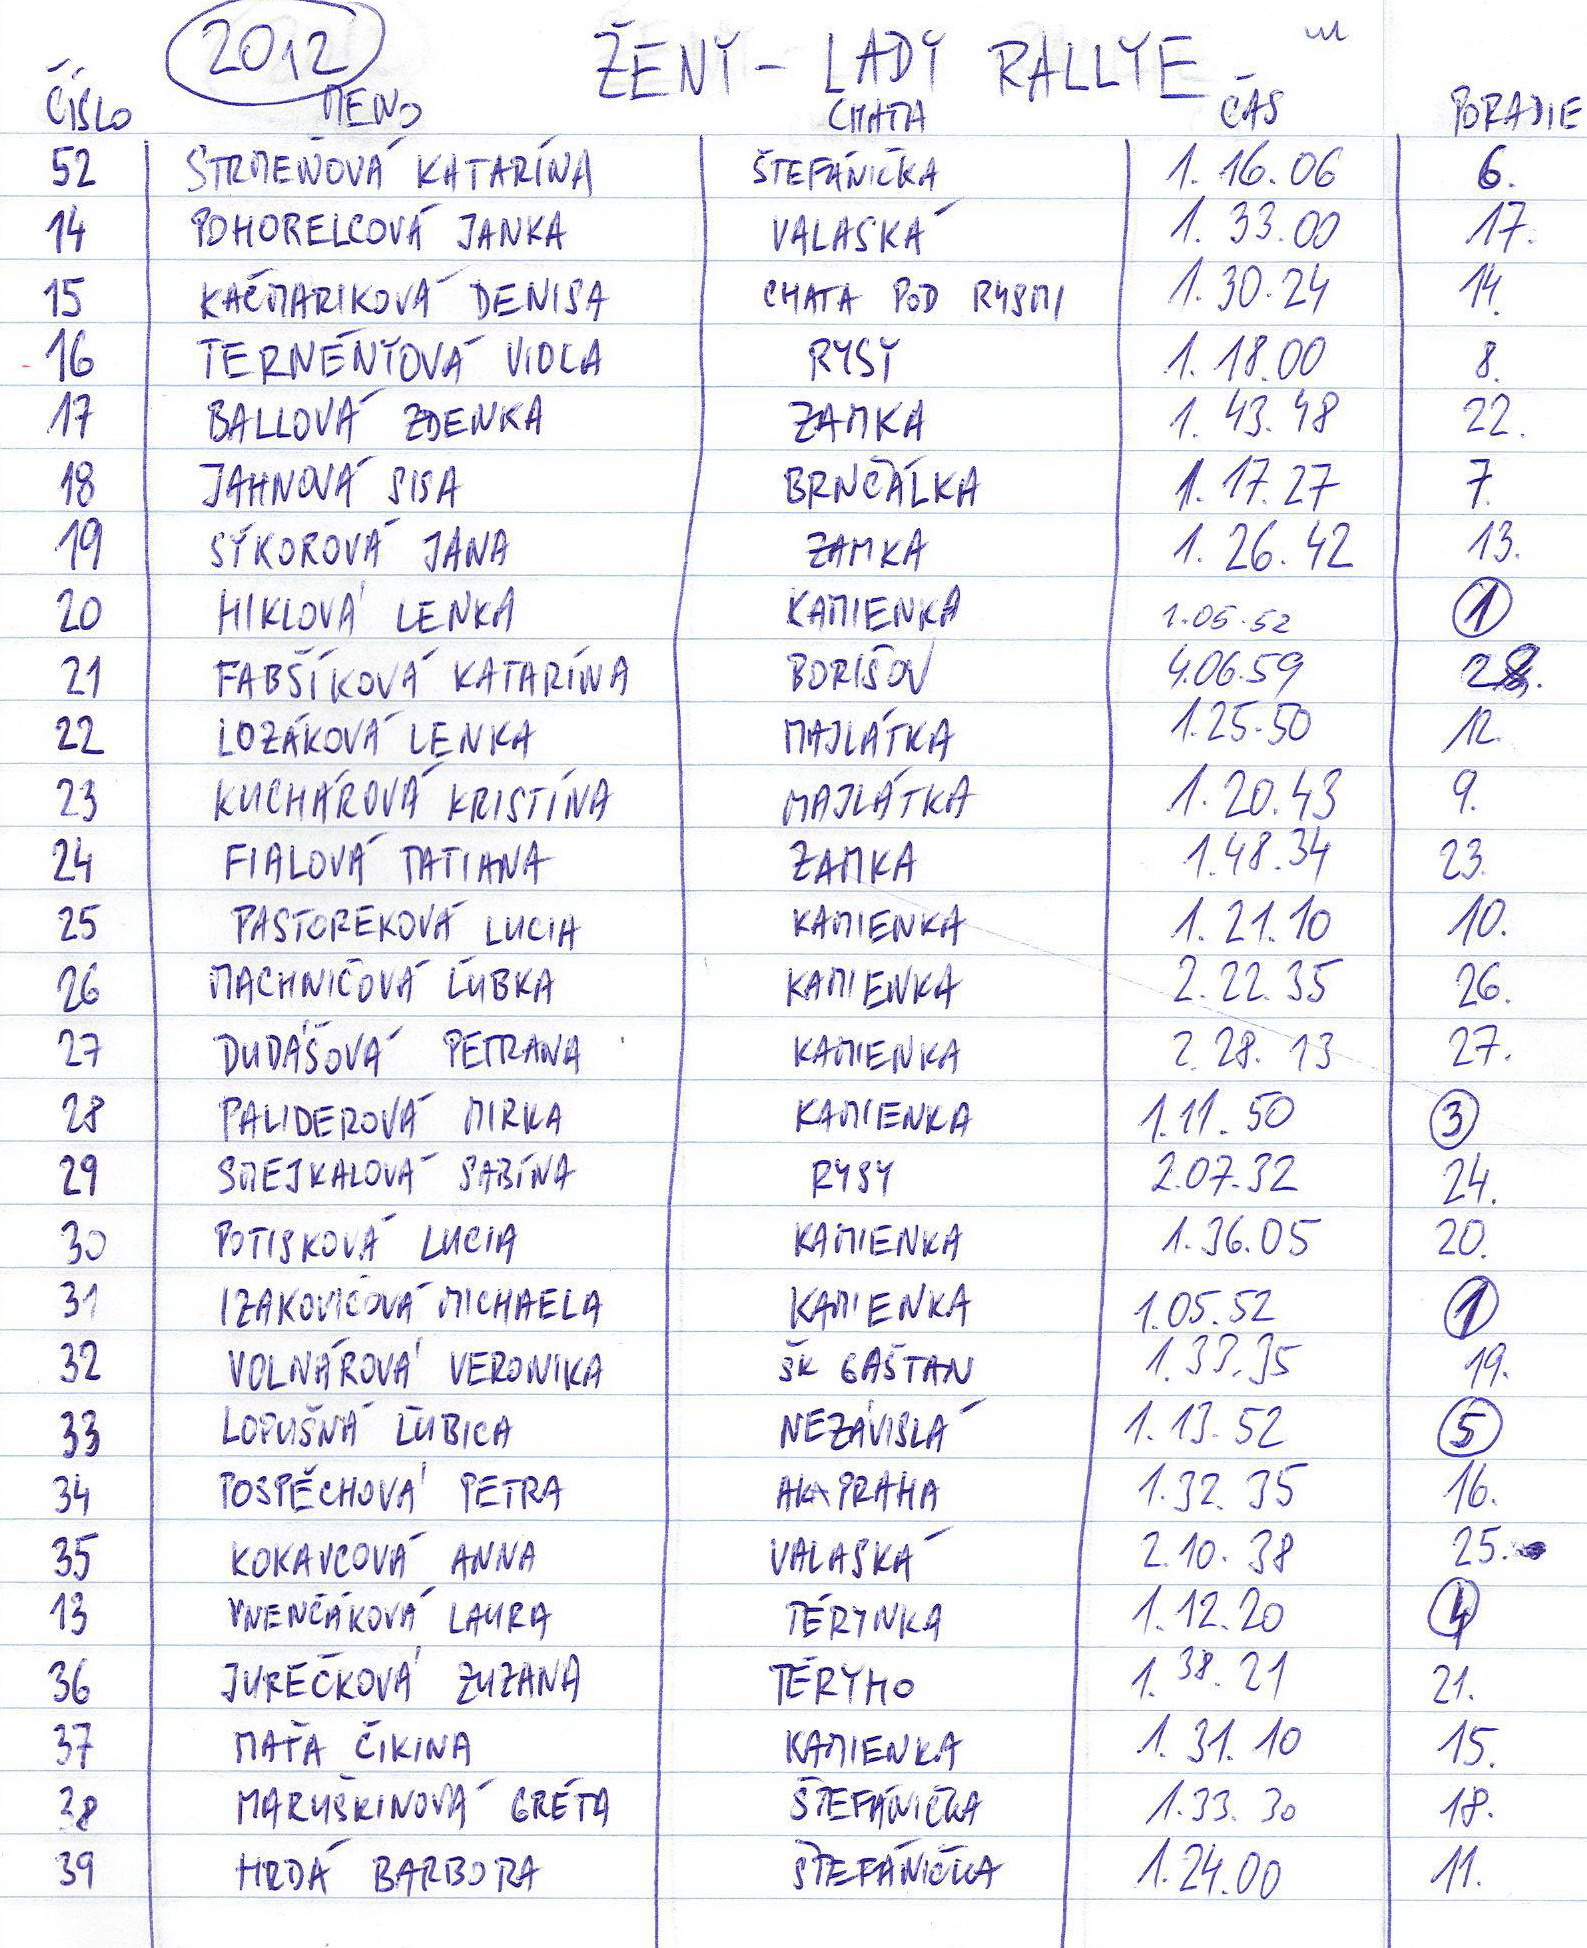 2012 ŽENY - LADY RALLYE
ČÍSLO MENO CHATA ČAS PORADIE
52 STRMEŇOVÁ KATARÍNA ŠTEFÁNIČKA 1.16.06 6.
14 POHORELCOVÁ JANKA VALASKÁ 1.33.00 17.
15 KAČMARIKOVÁ DENISA CHATA POD RYSMI 1.30.24 14.
16 TERNÉNYOVÁ VIOLA RYSY 1.18.00 8.
17 BALLOVÁ ZDENKA ZAMKA 1.43.48 22.
18 JAHNOVÁ SISA BRNČÁLKA 1.17.27 7.
19 SÝKOROVÁ JANA ZAMKA 1.26.42 13.
20 HIKLOVÁ LENKA KAMIENKA 1.05.52 1
21 FABŠÍKOVÁ KATARÍNA BORIŠOV 4.06.59 28.
22 LOZÁKOVÁ LENKA MAJLÁTKA 1.25.50 12.
23 KUCHÁROVÁ KRISTÍNA MAJLÁTKA 1.20.43 9.
24 FIALOVÁ TATIANA ZAMKA 1.48.34 23.
25 PASTOREKOVÁ LUCIA KAMIENKA 1.21.10 10.
26 MACHNIČOVÁ ĽUBKA KAMIENKA 2.22.35 26.
27 DUDÁŠOVÁ PETRANA KAMIENKA 2.28.13 27.
28 PALIDEROVÁ MIRKA KAMIENKA 1.11.50 3
29 SMEJKALOVÁ SABÍNA RYSY 2.07.32 24.
30 POTISKOVÁ LUCIA KAMIENKA 1.36.05 20.
31 IZAKOVIČOVÁ MICHAELA KAMIENKA 1.05.52 1
32 VOLNÁROVÁ VERONIKA ŠK GAŠTAN 1.33.35 19.
33 LOPUŠNÁ ĽUBICA NEZÁVISLÁ 1.13.52 5
34 POSPĚCHOVÁ PETRA AKA PRAHA 1.32.35 16.
35 KOKAVCOVÁ ANNA VALASKÁ 2.10.38 25.
13 VNENČÁKOVÁ LAURA TÉRYNKA 1.12.20 4
36 JUREČKOVÁ ZUZANA TÉRYHO 1.38.21 21.
37 MAŤA ČIKINA KAMIENKA 1.31.10 15.
38 MARUŠKINOVÁ GRÉTA ŠTEFÁNIČKA 1.33.30 18.
39 HRDÁ BARBORA ŠTEFÁNIČKA 1.24.00 11.